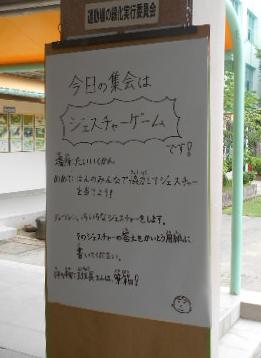 運動場の緑化実行委員会
今日の集会は
ジェスチャーゲーム
です!
場所:たいいくかん
めあて:はんのみんなで協力してジェスチャー
を当てよう!
いろいろなジェスチャーをします。
そのジェスチャーの答えをかいとう用紙に
書いてください。
は、筆箱!